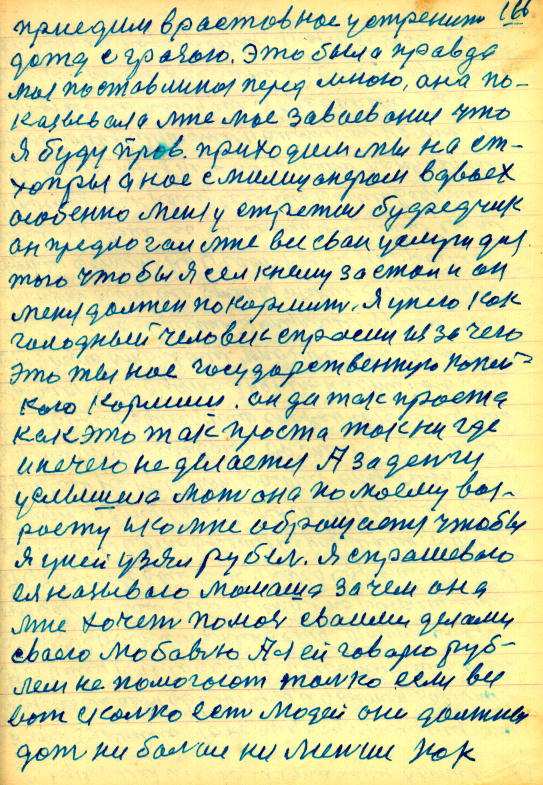 166
приедим врастовное устренит
дожд с грозою. Это была правда
моя поставлиноя перед мною, она по-
казывала мне мое завоевания что
я буду прав. приходим мы на ст-
хопры а нос смилицонером вдвоех
особенно меня устретил буфедчик
он предлогал мне все сваи услуги для
того чтобы я сел кнему застол и он
меня должен покормит. я унего как
голодный человек спросил из за чего
это ты нос государственную копей-
кою кормиш. он да так проста
как это так проста так ни где
и нечего не делается А за денги
услышила мат она помоему воз-
росту ико мне обращается чтобы
я уней узял рубел. я спрашеваю
ея называю момаша зачем она
мне хочет помоч своими делами
своею любовю А я ей говарю руб-
лем не помогают толко если вы
вот сколко ест людей они должны
дат ни болше ни менше как